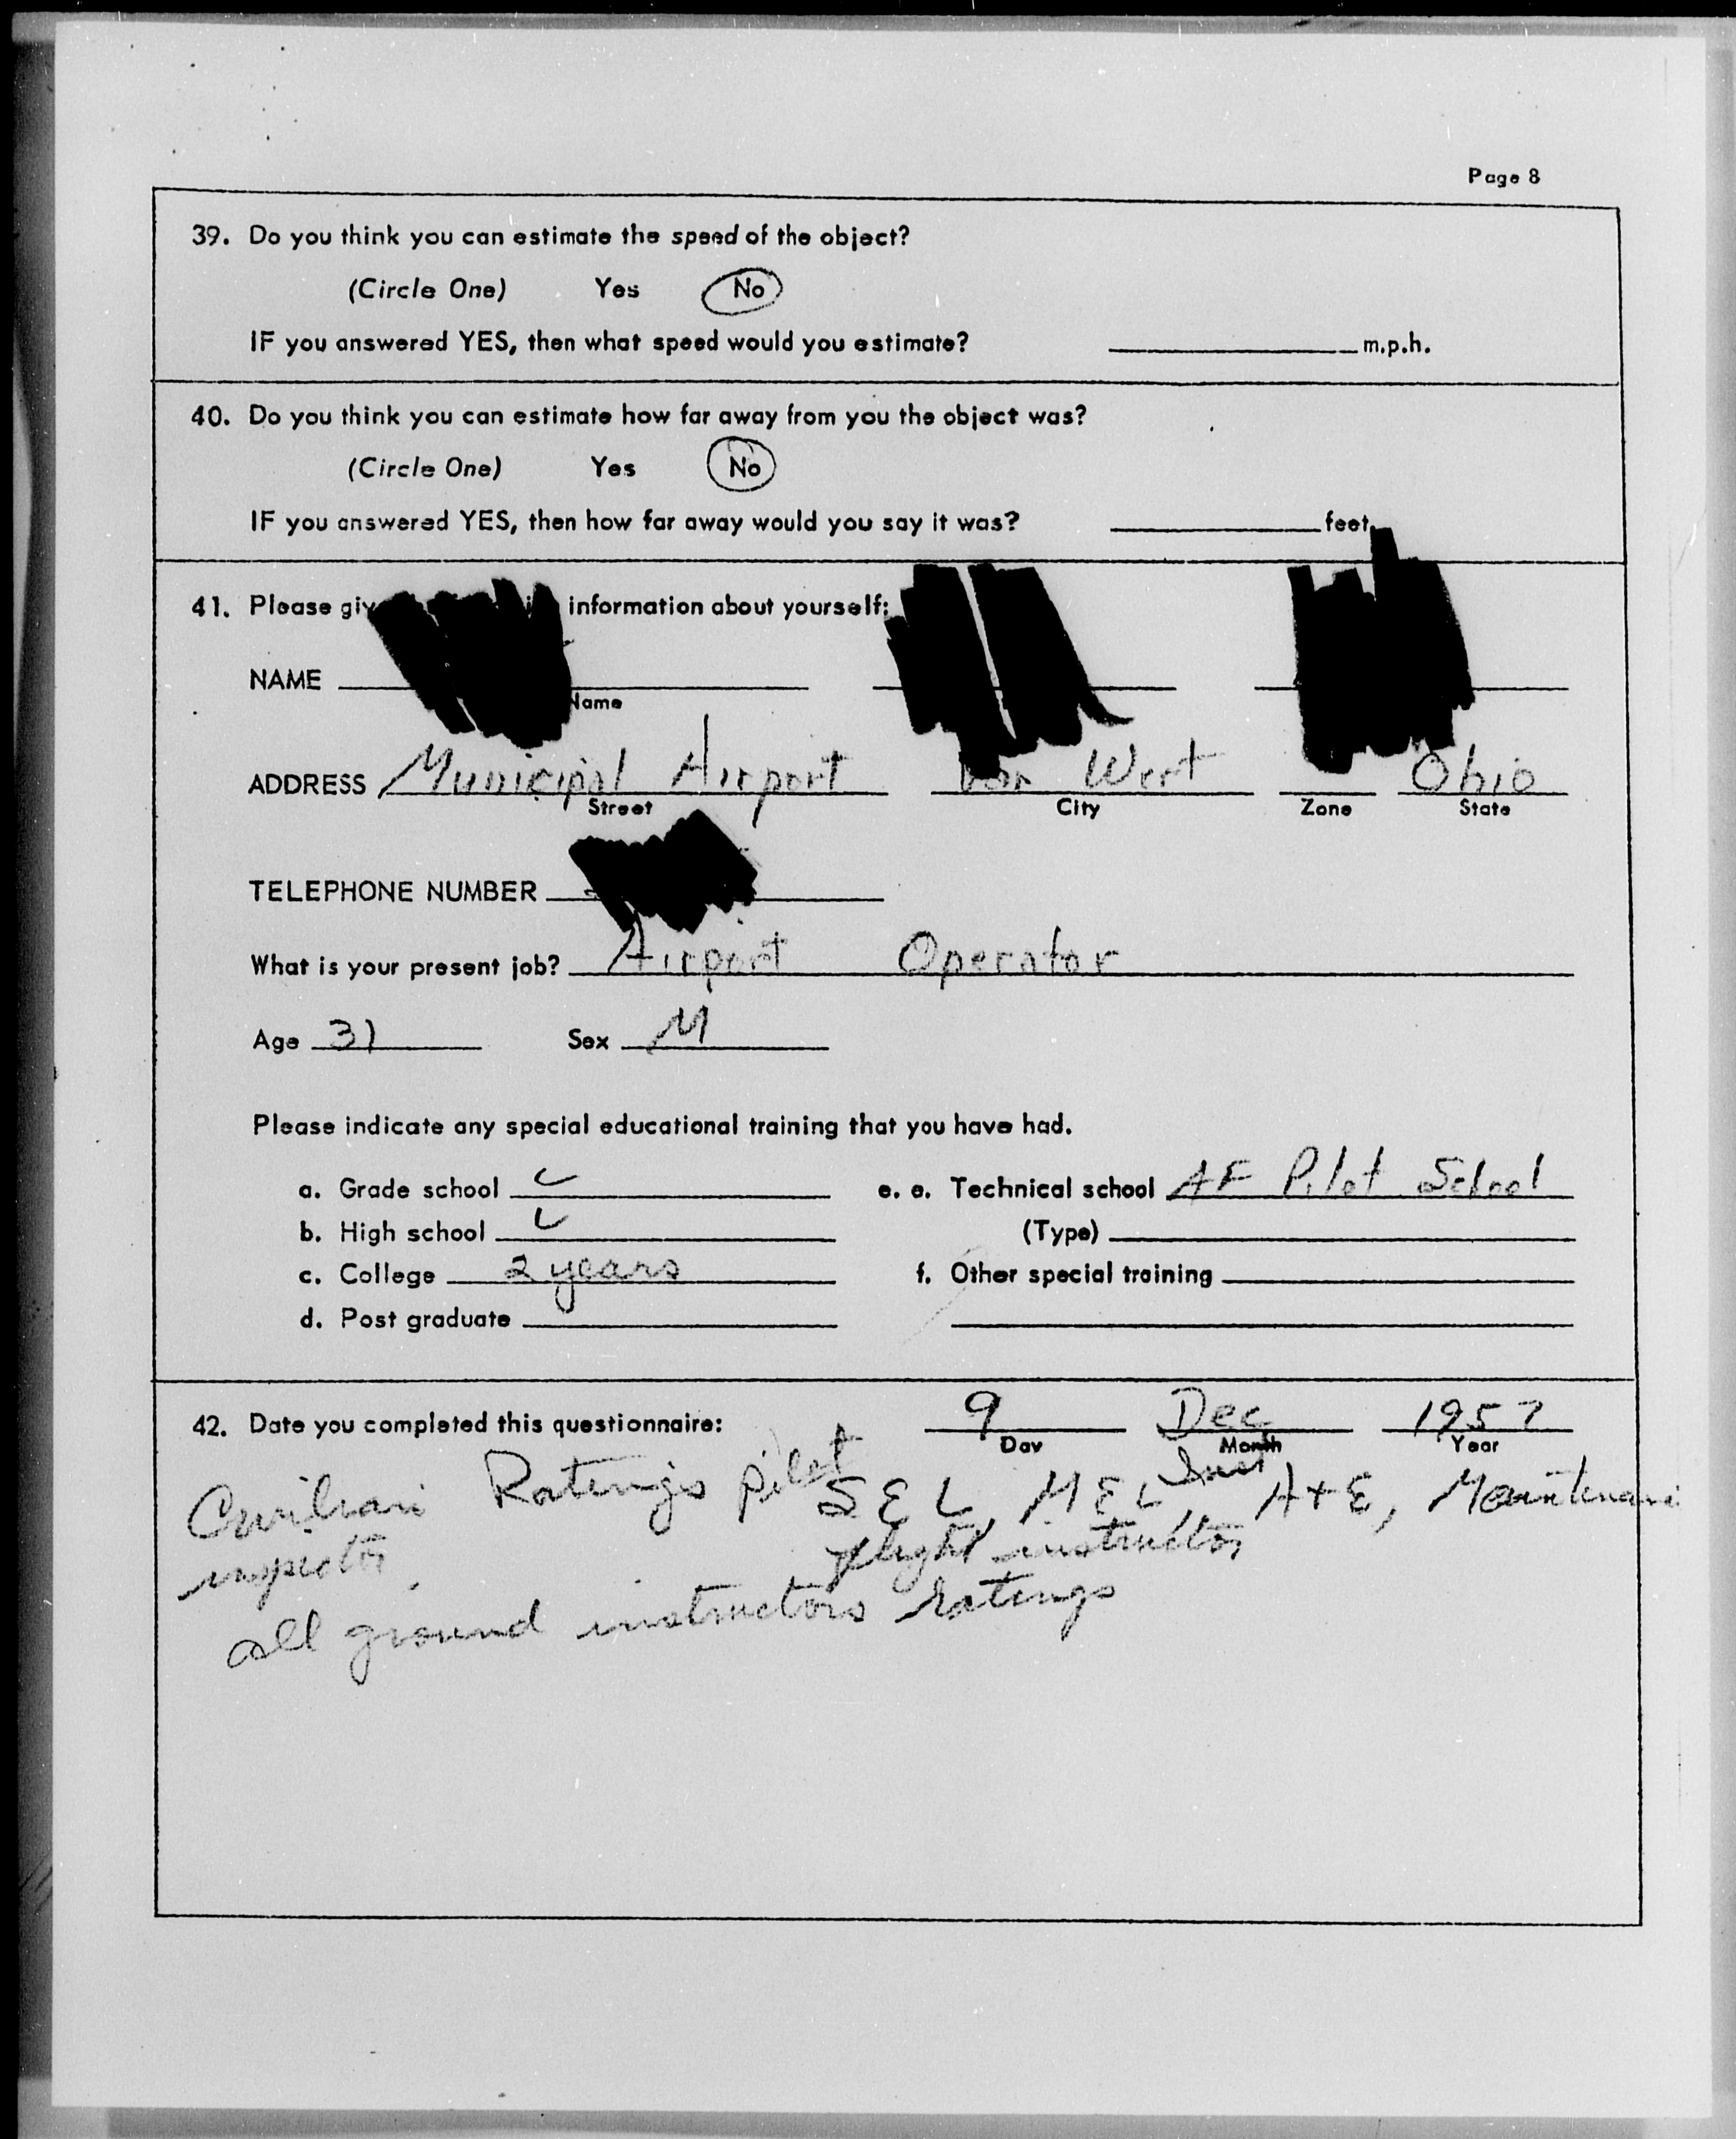 Page 8
39. Do you think you can estimate the speed of the object?
(Circle One) Yes No
IF you answered YES, then what speed would you estimate? m.p.h.
40. Do you think you can estimate how far away from you the object was?
(Circle One) Yes No
IF you answered YES, then how far away would you say it was? feet.
41. Please giv information about yourself:
NAME
Name
ADDRESS Municipal Airport Van Wert Ohio
Street City Zone State
TELEPHONE NUMBER
What is your present job? Airport Operator
Age 31 Sex M
Please indicate any special educational training that you have had.
a. Grade school e. e. Technical school AF Pilot School
b. High school (Type)
c. College 2 years f. Other special training
d. Post graduate
42. Date you completed this questionnaire: 9 Dec 1957
Day Month Year
Civilian Ratings pilot SEL, MEL, Inst A+E, Maintenance
inspector. flight instructor,
all ground instructors ratings